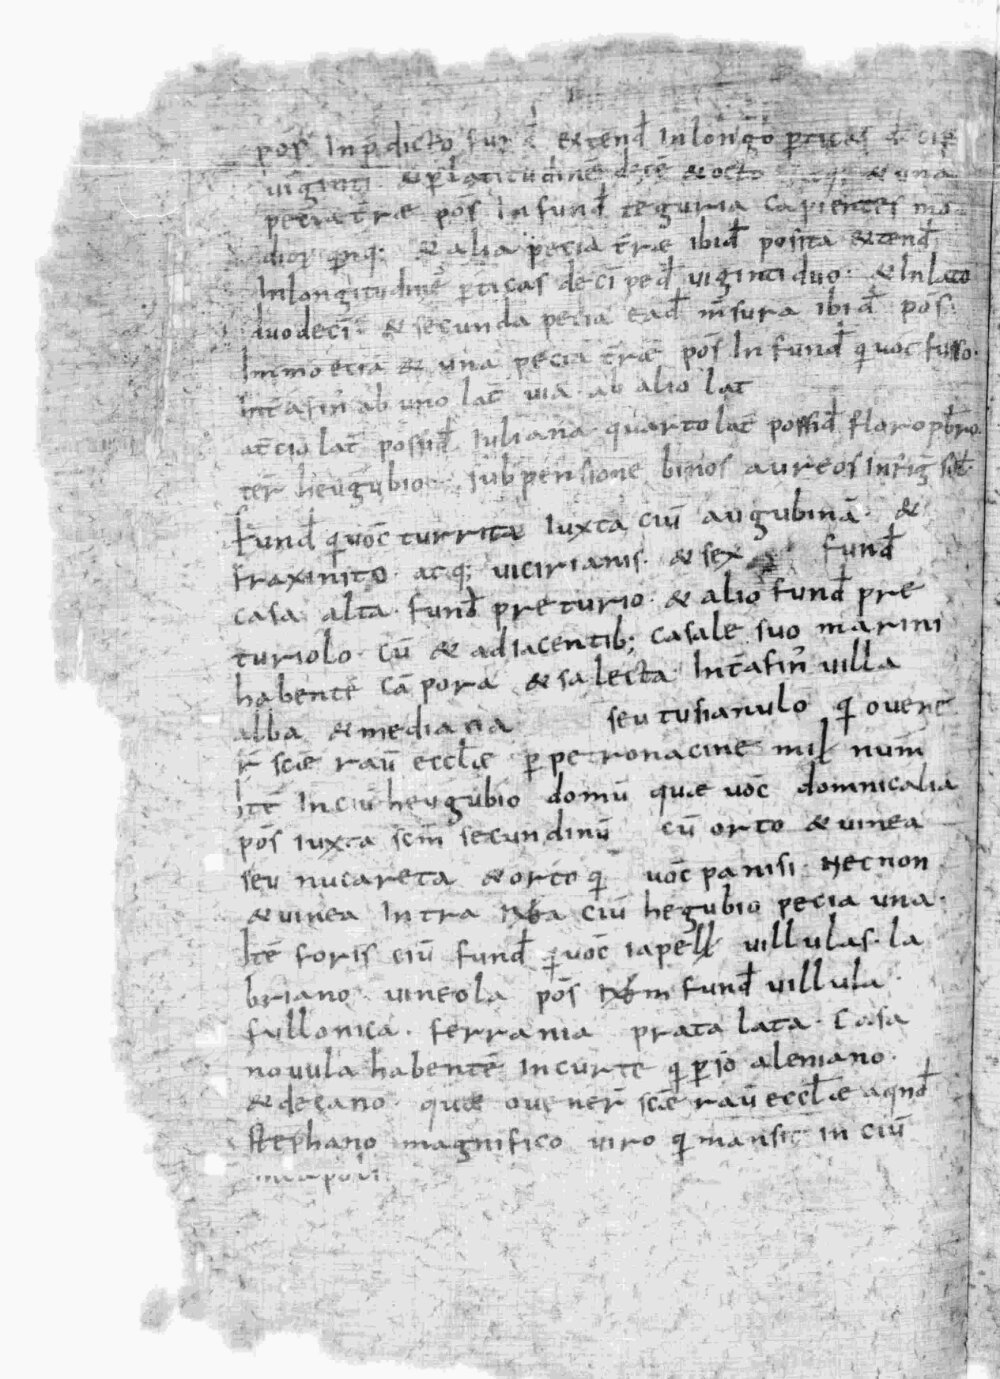 pos̄ In p̄dicto fun̄d extend̄ In longo p̄ticas deci
viginti & p̄ latitudinē decē & octo atq; & una
pecia tr̄ae pos̄ In fund̄ teguria capientes mo
dior̄ quinq; & alia pecia tr̄ae ibid̄ posita & tend̄
In longitudinē p̄ticas deci ped̄ viginti duo · & In lato
duodeci & secunda pecia ead̄ m̄sura ibid̄ pos̄
Immo etiā & una pecia tr̄ae pos̄ In fund̄ q̄ voc̄ fusso ·
Int̄ afin̄ ab uno lat̄ via · ab alio lat̄
at̄cio lat̄ possid̄ Iuliana quarto lat̄ possid̄ floro pb̄ro
ter̄ heugubio · sub pensione binos aureos In fig̅ sol̄
Fund̄ q̄ voc̄ turrita Iuxta ciū augubinā · &
fraxinito · atq; vicirianis · & sex fund̄
casa alta · fund̄ preturio · & alio fund̄ pre
turiolo · cū & adiacentib; casale suo marini
habentē cāpora & salecta Int̄ afin̄ villa
alba & mediana seu tusianulo q̄ ovene
r̄ sc̄ae raū eccl̄ae p̄ petronacine mil̄ num̄
Itē In ciū heugubio domū quae voc̄ domnicalia
pos̄ iuxta sc̄m secundinū cū orto & vinea
seu nucareta & orto q̄ voc̄ panisi · necnon
& vinea Intra ciū hegubio pecia una ·
Itē foris ciū fund̄ q̄ voc̄ iapell̄ villulas · la
briano · vineola pos̄ fund̄ villula ·
fullonica · ferrania prata lata · casa
novula habentē In curte q̄ p̄ io alemano ·
& decano · quae ovener̄ sc̄ae raū eccl̄ae a qnd̄
stephano magnifico viro q̄ mansit in ciū
neapoli